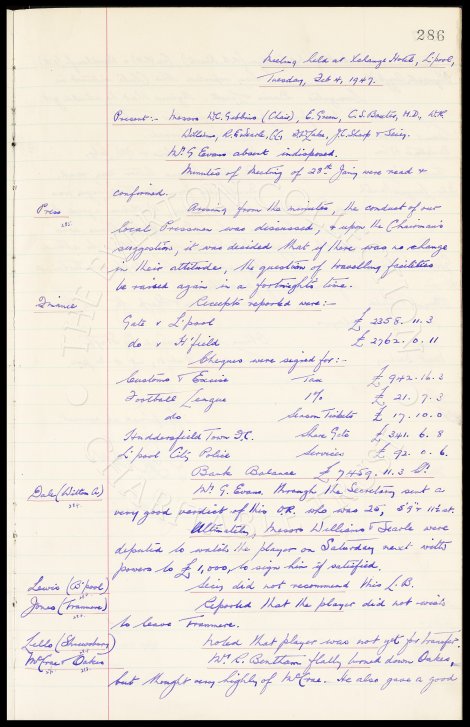 286
Meeting held at Xchange Hotel, L'pool,
Tuesday, Feb 4, 1947.
Present:- Messrs W.C. Gibbins (Chair), E. Green, C.S. Baxter, H.D., W.R.
Williams, R.E. Searle, J.C. Sharp & Secy.
Mr G Evans absent indisposed.
Minutes of Meeting of 28th Jany were read &
confirmed.
Press
Arising from the minutes, the conduct of our
local Pressmen was discussed, & upon the Chairman's
suggestion, it was decided that if there was no change
in their attitudes, the question of travelling facilities
be raised again in a fortnights time.
Finance
Receipts reported were:-
Gate v L'pool £ 2358. 11. 3
do v H'field £ 2762. 0. 11
Cheques were signed for:-
Customs & Excise Tax £ 942. 16. 3
Football League 1% £ 21. 7. 3
do Season Tickets £ 17. 10. 0
Huddersfield Town F.C. Share Gate £ 341. 6. 8
L'pool City Police Services £ 92. 0. 6
Bank Balance £ 7459. 11. 3
Dale (Witton A)
Mr G. Evans, through the Secretary sent a
very good verdict of this O.R. who was 25, 5'9" & 11½ st.
Ultimately, Messrs Williams & Searle were
deputed to watch the player on Saturday next with
powers to £1,000, to sign him if satisfied.
Lewis (B'pool)
Secy did not recommend this L.B.
Jones (Tranmere)
Reported that the player did not wish
to leave Tranmere.
Lello (Shrewsbury)
Noted that player was not yet for transfer.
McCrae & Oakes
Mr R. Bentham flatly turned down Oakes,
but thought very highly of McCrae. He also gave a good